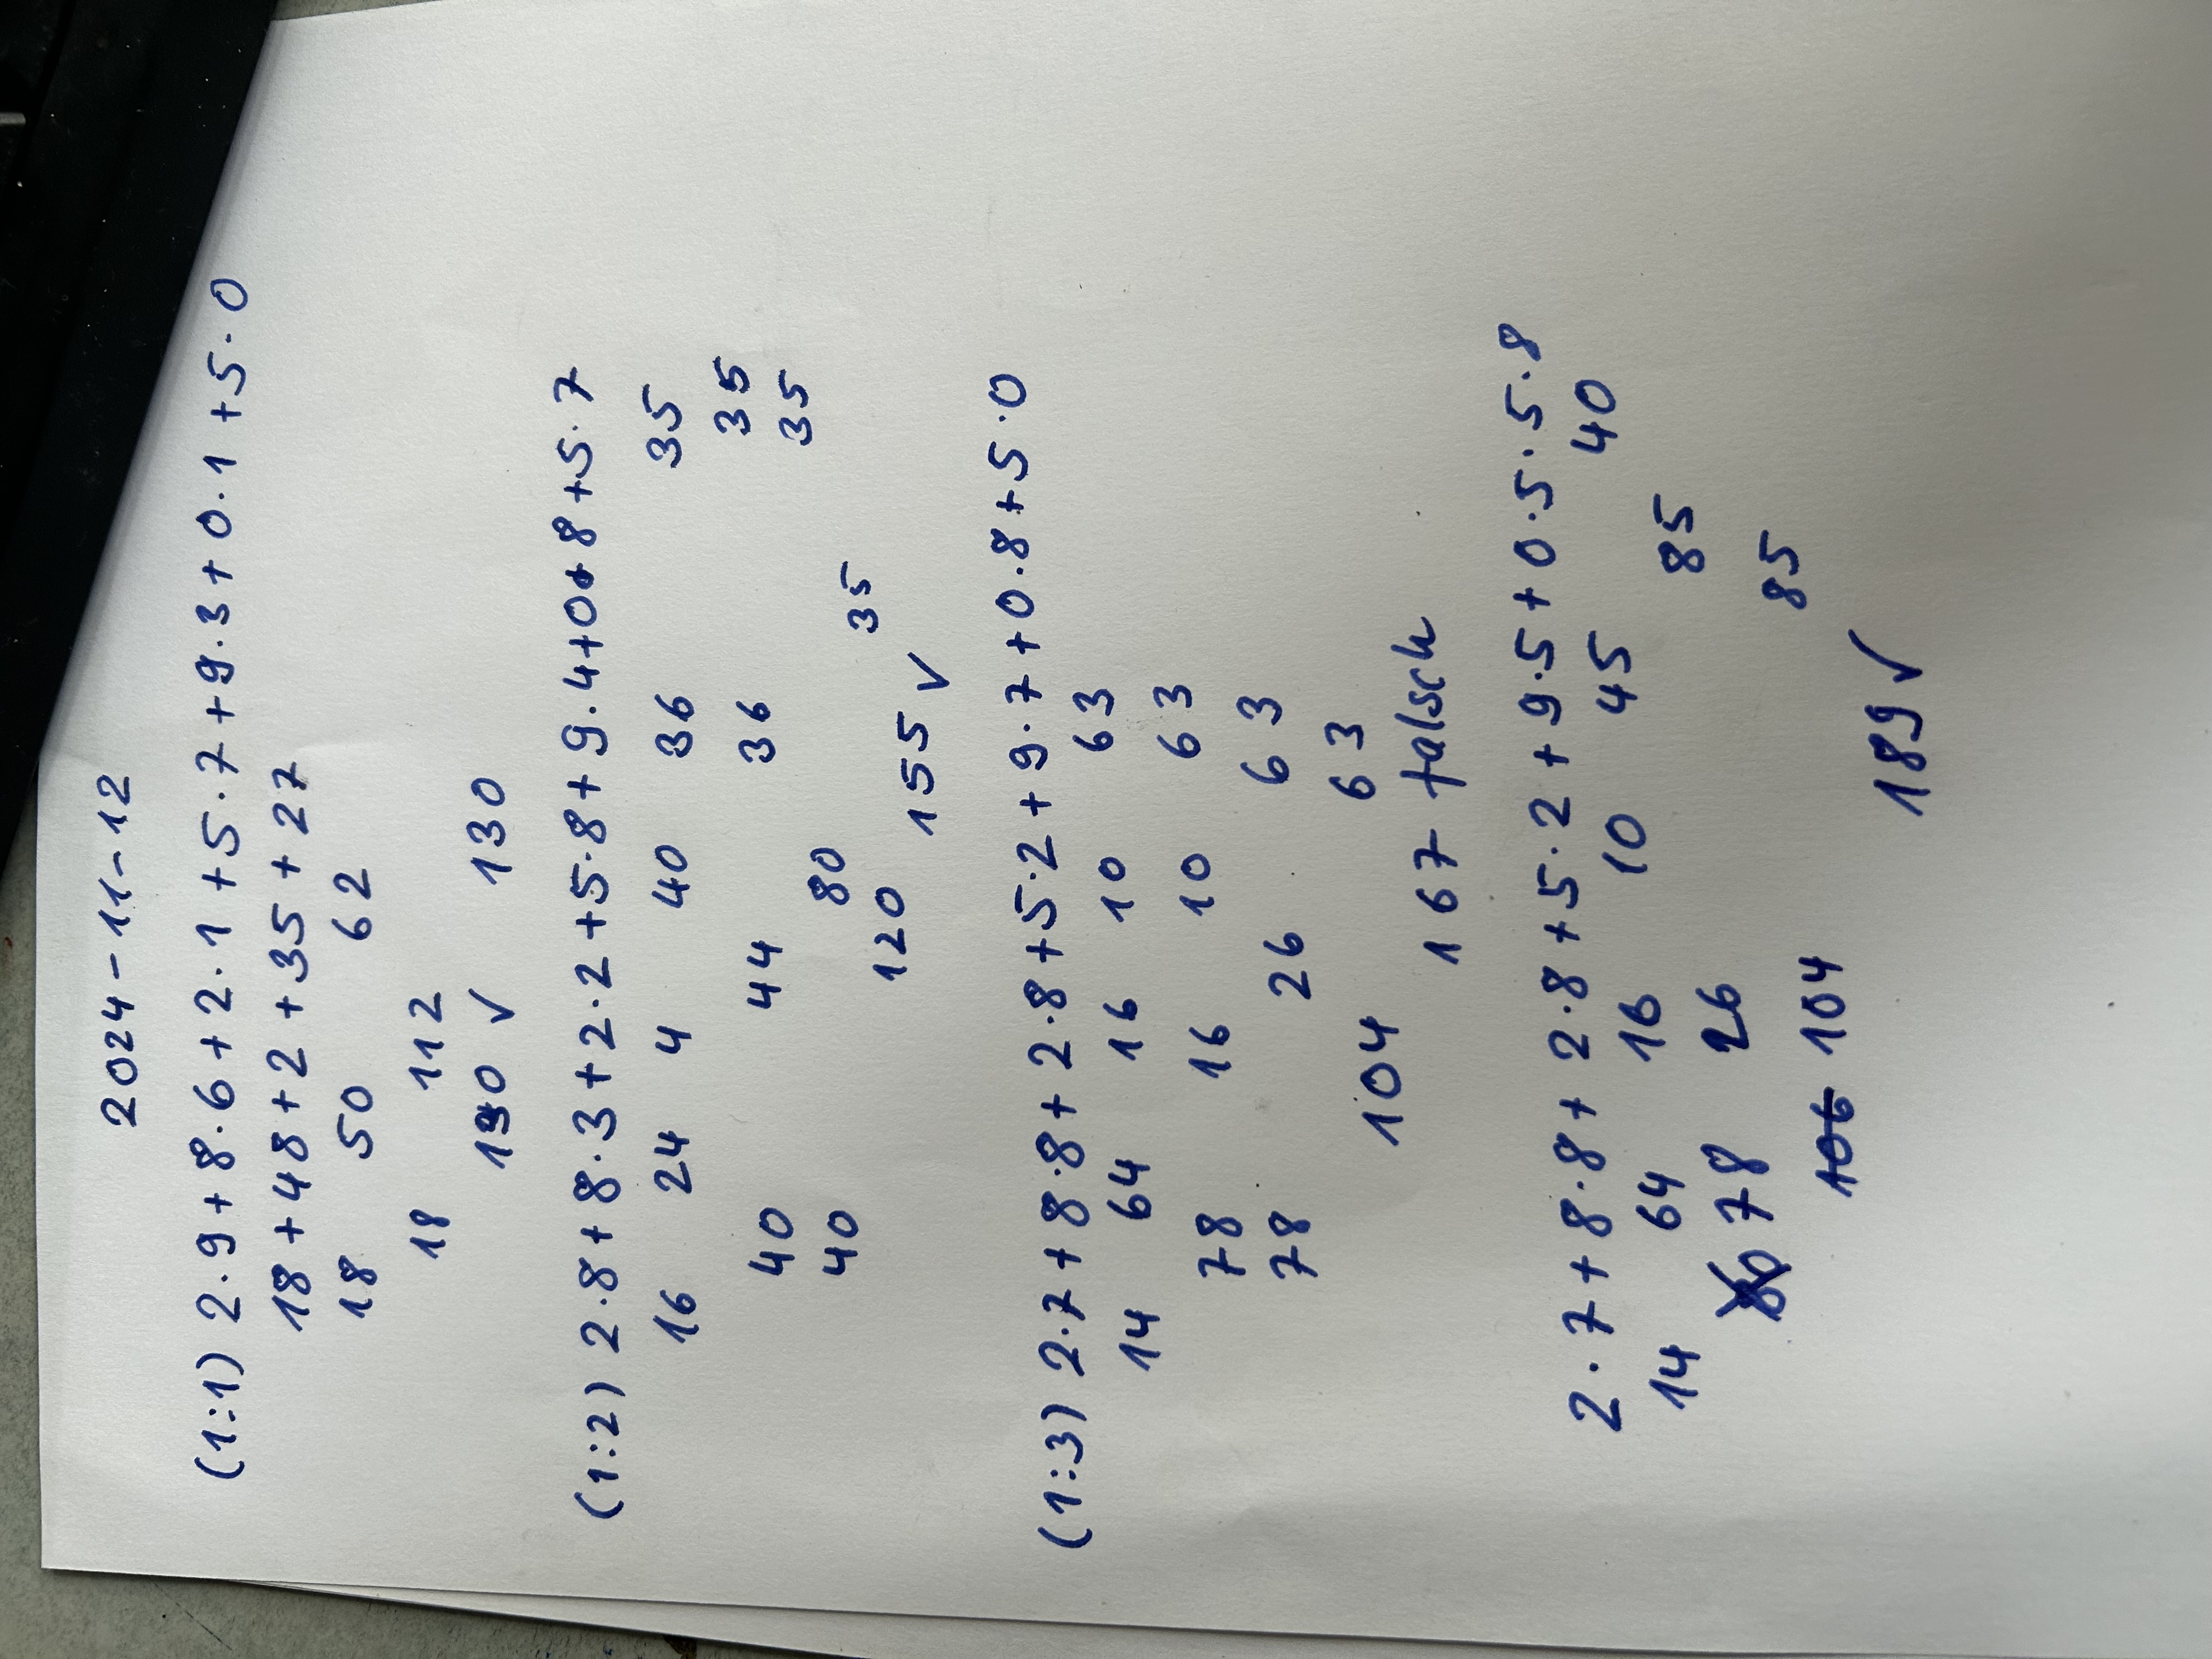 2024-11-12
(1:1) 2·9+8·6+2·1+5·7+9·3+0·1+5·0
18+48+2+35+27
18 50 62
18 112
130 ✓ 130
(1:2) 2·8+8·3+2·2+5·8+9·4+0+8+5·7
16 24 4 40 36 35
40 44 36 35
40 80 35
120 35
155 ✓
(1:3) 2·7+8·8+2·8+5·2+9·7+0·8+5·0
14 64 16 10 63
78 16 10 63
78 26 63
104 63
167 falsch
2·7+8·8+2·8+5·2+9·5+0·5·5·8
14 64 16 10 45 40
78 26 85
106 104 85
189 ✓